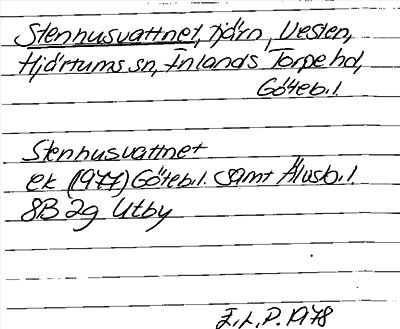 Stenhusvattnet, tjärn, Vesten,
Hjärtums sn, Inlands Torpe hd,
Göteb.l.
Stenhusvattnet
ek (1977) Göteb.l. samt Älvsb.l.
8B 2g Utby
E.L.P. 1978